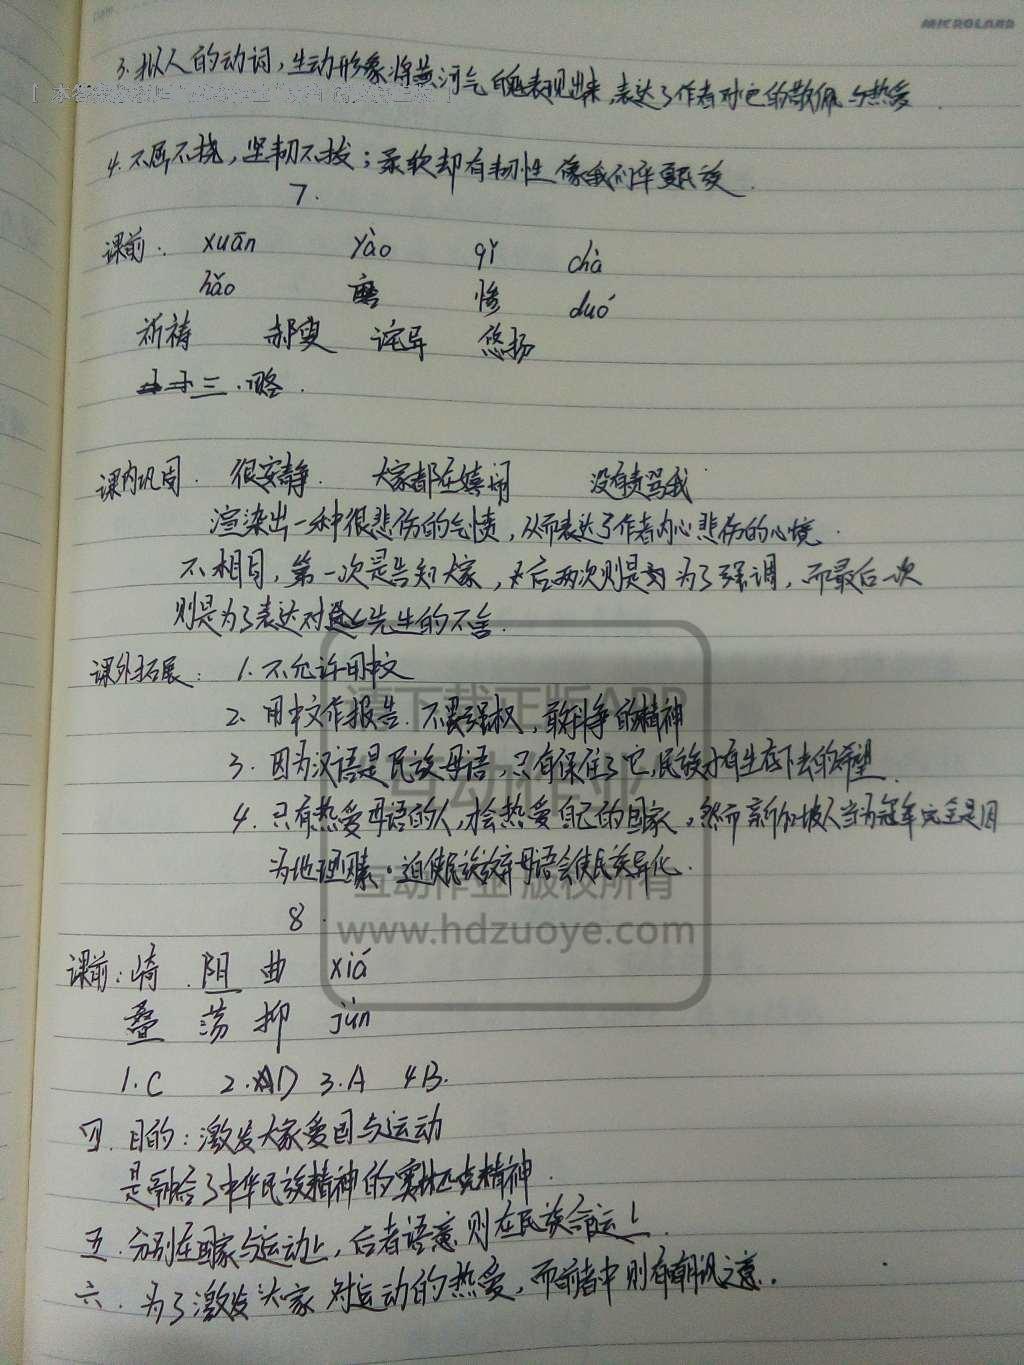 MICROLAND
3.拟人的动词,生动形象将黄河气魄表现出来,表达了作者对它的敬佩与热爱
4.不屈不挠,坚韧不拔;柔软却有韧性像我们华夏民族.
7.
课前: xuān yào qǐ chà
hǎo 磨 惨 duó
祈祷 郝叟 诧异 悠扬
三.略.
课内巩固. 很安静. 大家都在嬉闹 没有责骂我
渲染出一种很悲伤的气愤,从而表达了作者内心悲伤的心境.
不相同,第一次是告知大家,后两次则是为了强调,而最后一次
则是为了表达对先生的不舍.
课外拓展: 1.不允许用中文
2.用中文作报告.不畏强权,敢斗争的精神
3.因为汉语是民族母语,只有保住了它,民族才有生存下去的希望.
4.只有热爱母语的人,才会热爱自己的国家。然而新加坡人当为冠军完全是因
为地理因素。迫使民族放弃母语会使民族异化.
请下载正版APP
互动作业
互动作业 版权所有
www.hdzuoye.com
8.
课前:崎 阻 曲 xiá
叠 荡 抑 jùn
1.C 2.D 3.A 4B.
四.目的:激发大家爱国与运动
是融合了中华民族精神的奥林匹克精神.
五.分别在国家与运动上,后者语意则在民族命运上
六.为了激发大家对运动的热爱,而前者中则有讽之意.